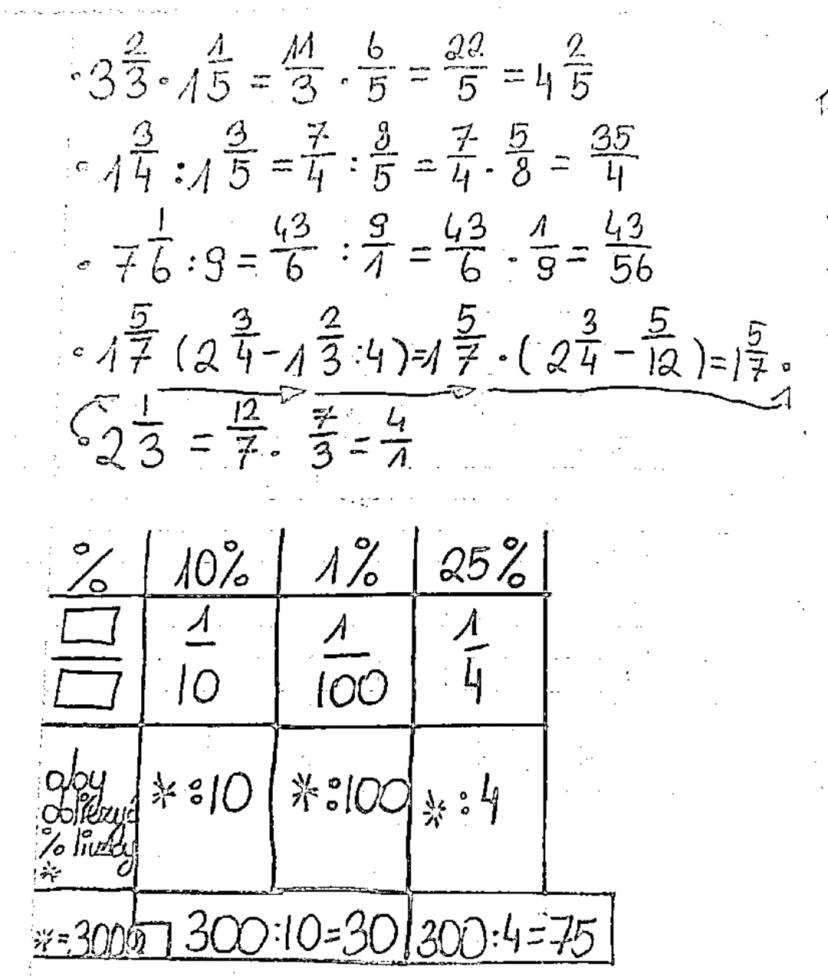 • 3 2/3 · 1 1/5 = 11/3 · 6/5 = 22/5 = 4 2/5
• 1 3/4 : 1 3/5 = 7/4 : 8/5 = 7/4 · 5/8 = 35/4
• 7 1/6 : 9 = 43/6 : 9/1 = 43/6 · 1/9 = 43/56
• 1 5/7 (2 3/4 - 1 2/3 : 4) = 1 5/7 · (2 3/4 - 5/12) = 1 5/7 ·
2 1/3 = 12/7 · 7/3 = 4/1
% 10% 1% 25%
□/□ 1/10 1/100 1/4
aby
obliczyć *:10 *:100 *:4
% liczby
*
*=300 300:10=30 300:4=75